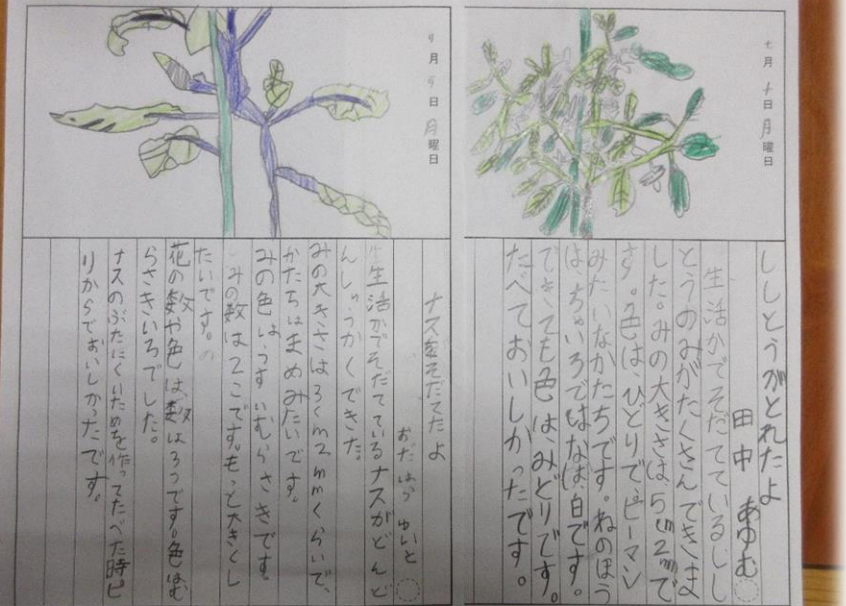 七月十日月曜日
ししとうがとれたよ
田中 あゆむ
生活かでそだてているしし
とうのみがたくさんできま
した。みの大きさは5cm2mmで
す。色は、ひとりで、ピーマン
みたいなかたちです。ねのほう
は、ちゃいろではなは、白です。
できても色は、みどりです。
たべておいしかったです。
月
日月曜日
ナスをそだてたよ
おだはら ゆいと
生活かでそだてているナスがどんど
んしゅうかくできた。
みの大きさは3cm2mmくらいで、
かたちはまめみたいです。
みの色は、うすいむらさきです。
みの数は2こです。もっと大きくし
たいです。
花の数や色は、数は3つです。色はむ
らさきいろでした。
ナスのぶたにくいためを作ってたべた時ピ
リからでおいしかったです。